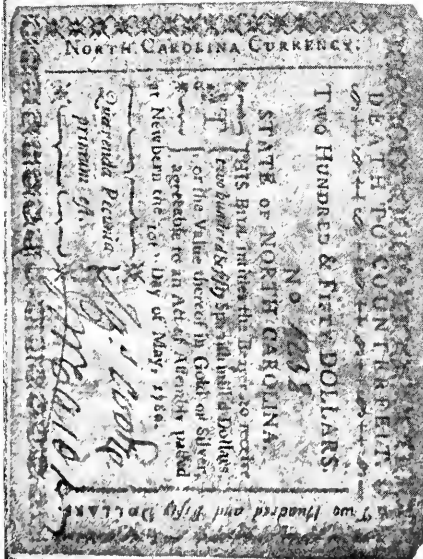 NORTH CAROLINA CURRENCY.
DEATH TO COUNTERFEIT
TWO HUNDRED & FIFTY DOLLARS
No
STATE OF NORTH CAROLINA.
THIS BILL intitles the Bearer to receive
two hundred & fifty Spanish milled Dollars
or the Value thereof in Gold or Silver
agreeable to an Act of Assembly passed
at Newbern the 10th Day of May, 1780.
Quærenda Pecunia
primum est.
Two Hundred and Fifty DOLLARS.